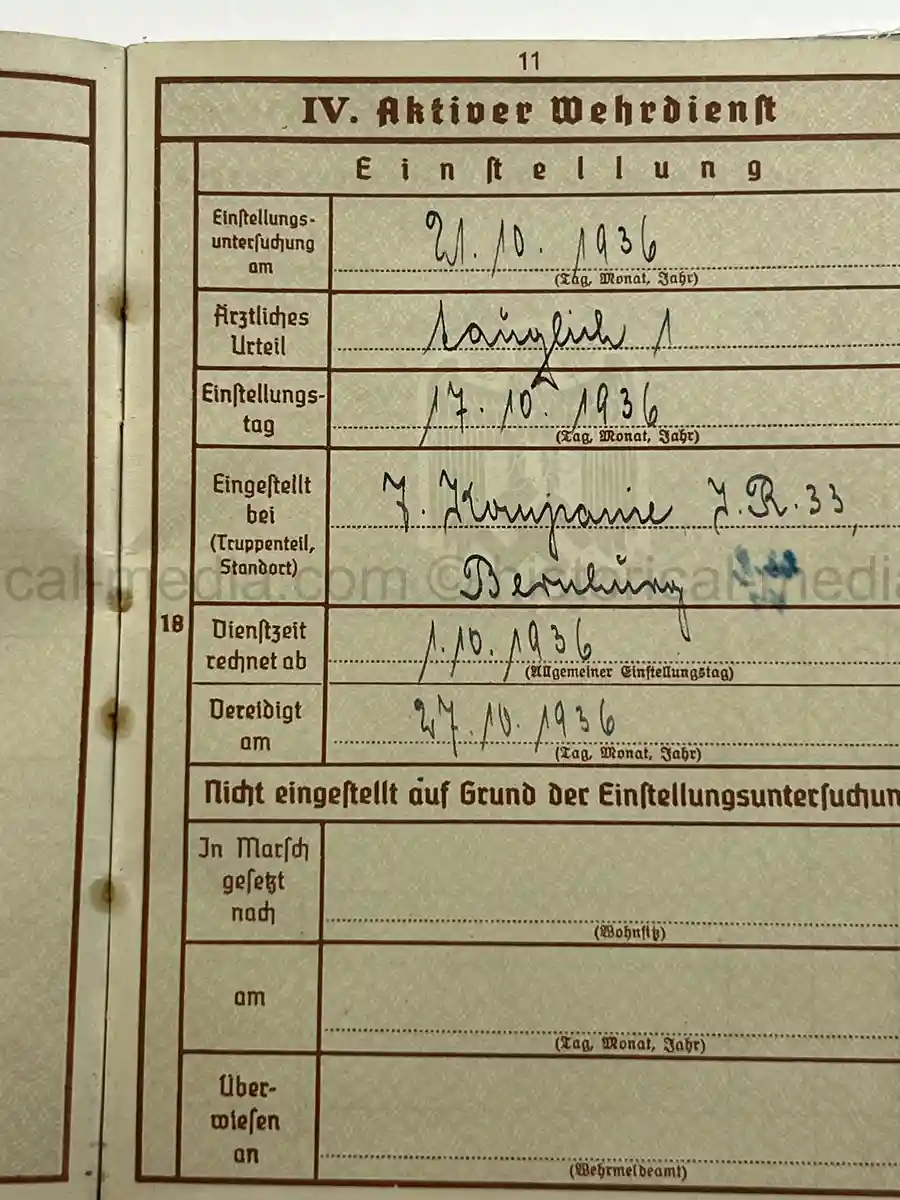 11
IV. Aktiver Wehrdienst
Einstellung
Einstellungs-
untersuchung
am
21. 10. 1936
(Tag, Monat, Jahr)
Ärztliches
Urteil
tauglich 1
Einstellungs-
tag
17. 10. 1936
(Tag, Monat, Jahr)
Eingestellt
bei
(Truppenteil,
Standort)
7. Kompanie J.R. 33,
Bernburg
cal-media.com © historical-media
18
Dienstzeit
rechnet ab
1. 10. 1936
(Allgemeiner Einstellungstag)
Vereidigt
am
27. 10. 1936
(Tag, Monat, Jahr)
Nicht eingestellt auf Grund der Einstellungsuntersuchun
In Marsch
gesetzt
nach
(Wohnsitz)
am
(Tag, Monat, Jahr)
Über-
wiesen
an
(Wehrmeldeamt)